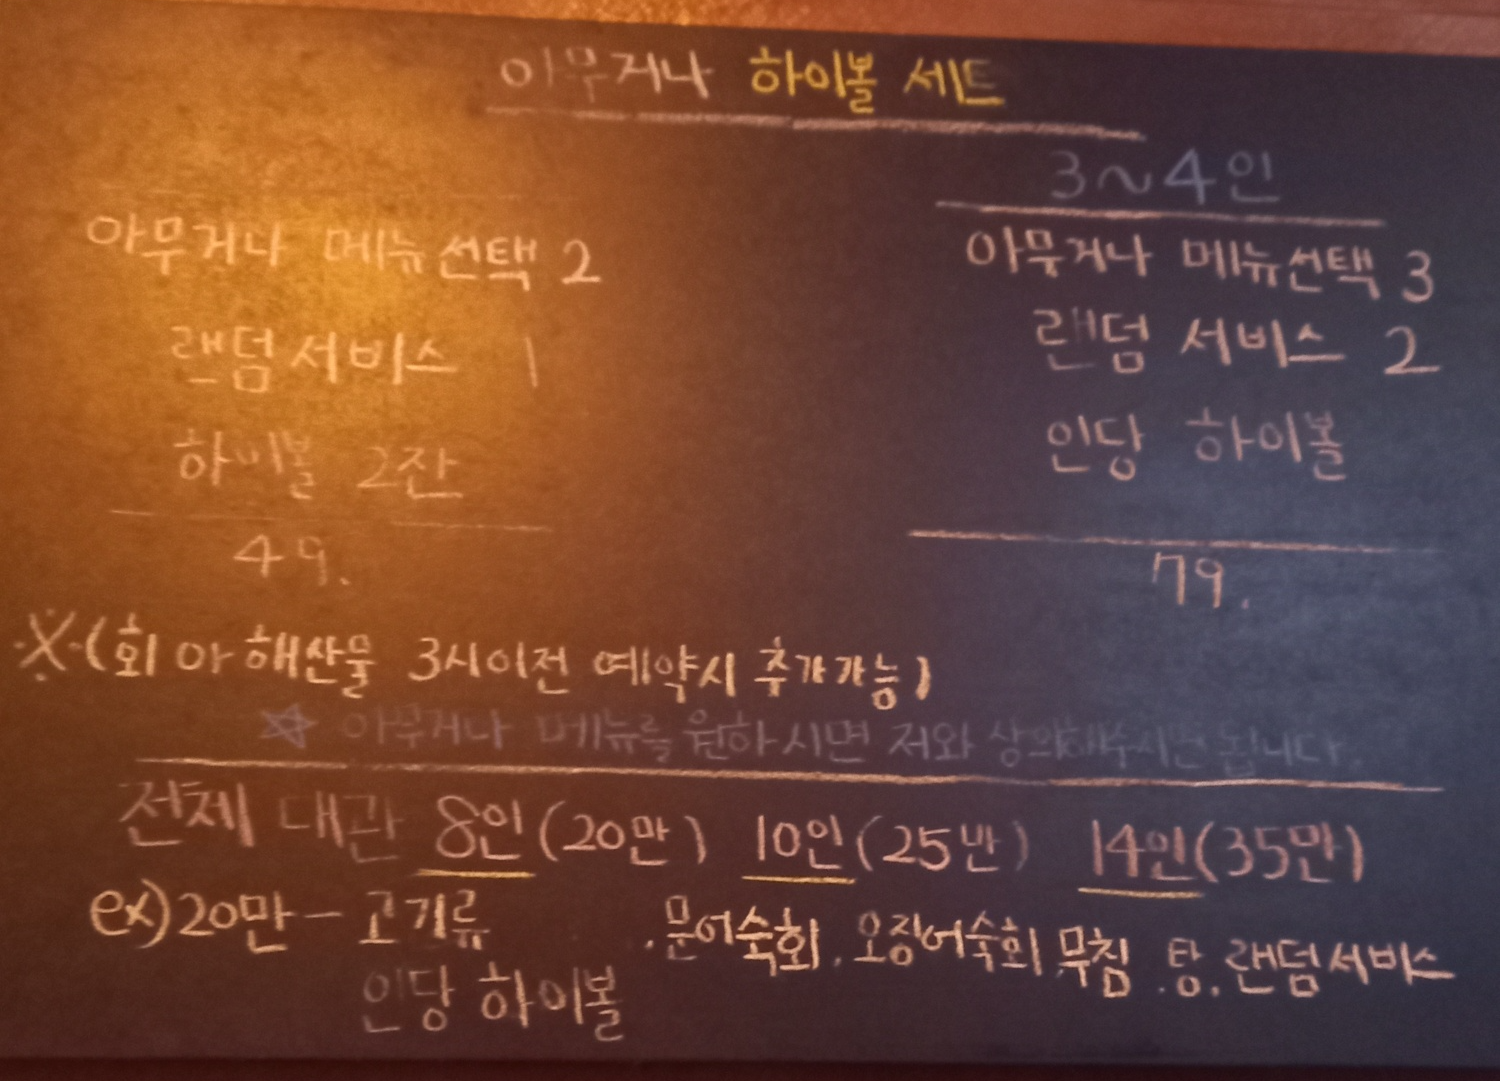 아무거나 하이볼 세트
아무거나 메뉴선택 2
랜덤서비스 1
하이볼 2잔
49.
3~4인
아무거나 메뉴선택 3
랜덤 서비스 2
인당 하이볼
79.
※(회 아 해산물 3시이전 예약시 추가가능)
☆ 아무거나 메뉴를 원하시면 저와 상의해주시면 됩니다.
전체 대관 8인(20만) 10인(25만) 14인(35만)
ex)20만 - 고기류 .문어숙회. 오징어숙회 무침. 탕. 랜덤서비스
인당 하이볼